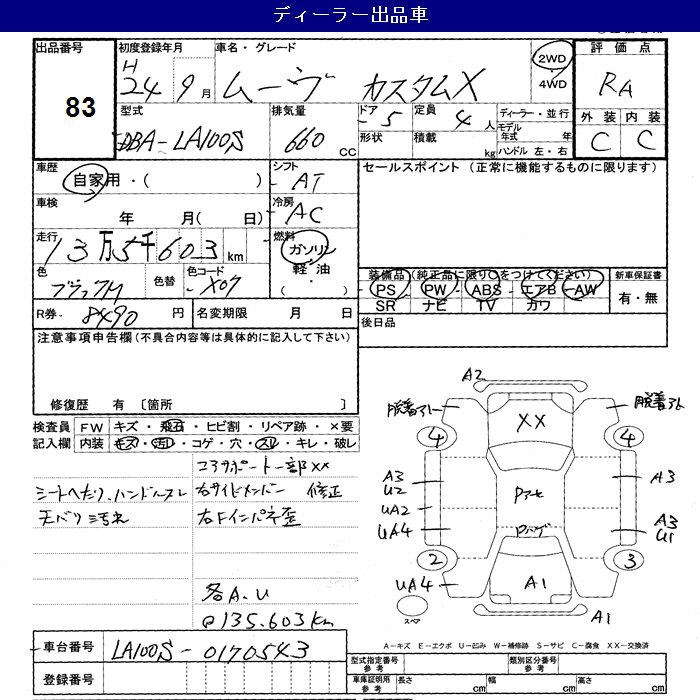 ディーラー出品車
出品番号
83
初度登録年月
H
24 9月
車名・グレード
ムーヴ カスタムX
2WD
4WD
評価点
RA
外装 内装
C C
型式
DBA-LA100S
排気量
660 cc
ドア
5
形状
定員
4人
積載
kg
ディーラー・並行
モデル年式 年
ハンドル 左・右
車歴
自家用・( )
シフト
AT
セールスポイント (正常に機能するものに限ります)
車検
年 月( 日)
冷房
AC
走行
13万5千603km
燃料
ガソリン
軽油
( ・ )
色
ブラックM
色替
色コード
X07
装備品(純正品に限り○をつけてください)
PS PW ABS エアB AW
SR ナビ TV カワ
新車保証書
有・無
R券
8490円
名変期限 月 日
後日品
注意事項申告欄(不具合内容等は具体的に記入して下さい)
修復歴 有 〔箇所 〕
検査員
記入欄
FW キズ・飛石・ヒビ割・リペア跡・×要
内装 キズ・汚レ・コゲ・穴・スレ・キレ・破レ
シートヘたり、ハンドルスレ
天バリ汚れ
コアサポート一部XX
右サイドメンバー 修正
右Fインパネ歪
各A.U
@135.603km
A2
脱着外
脱着外
XX
4
4
A3
U2
UA2
UA4
Pアセ
Pハゲ
A3
A3
U1
2
3
UA4
A1
A1
スペア
A-キズ E-エクボ U-凹み W-補修跡 S-サビ C-腐食 XX-交換済
車台番号
LA100S-0170543
登録番号
型式指定番号
参考
類別区分番号
参考
車庫証明用
参考
長さ cm
幅 cm
高さ cm